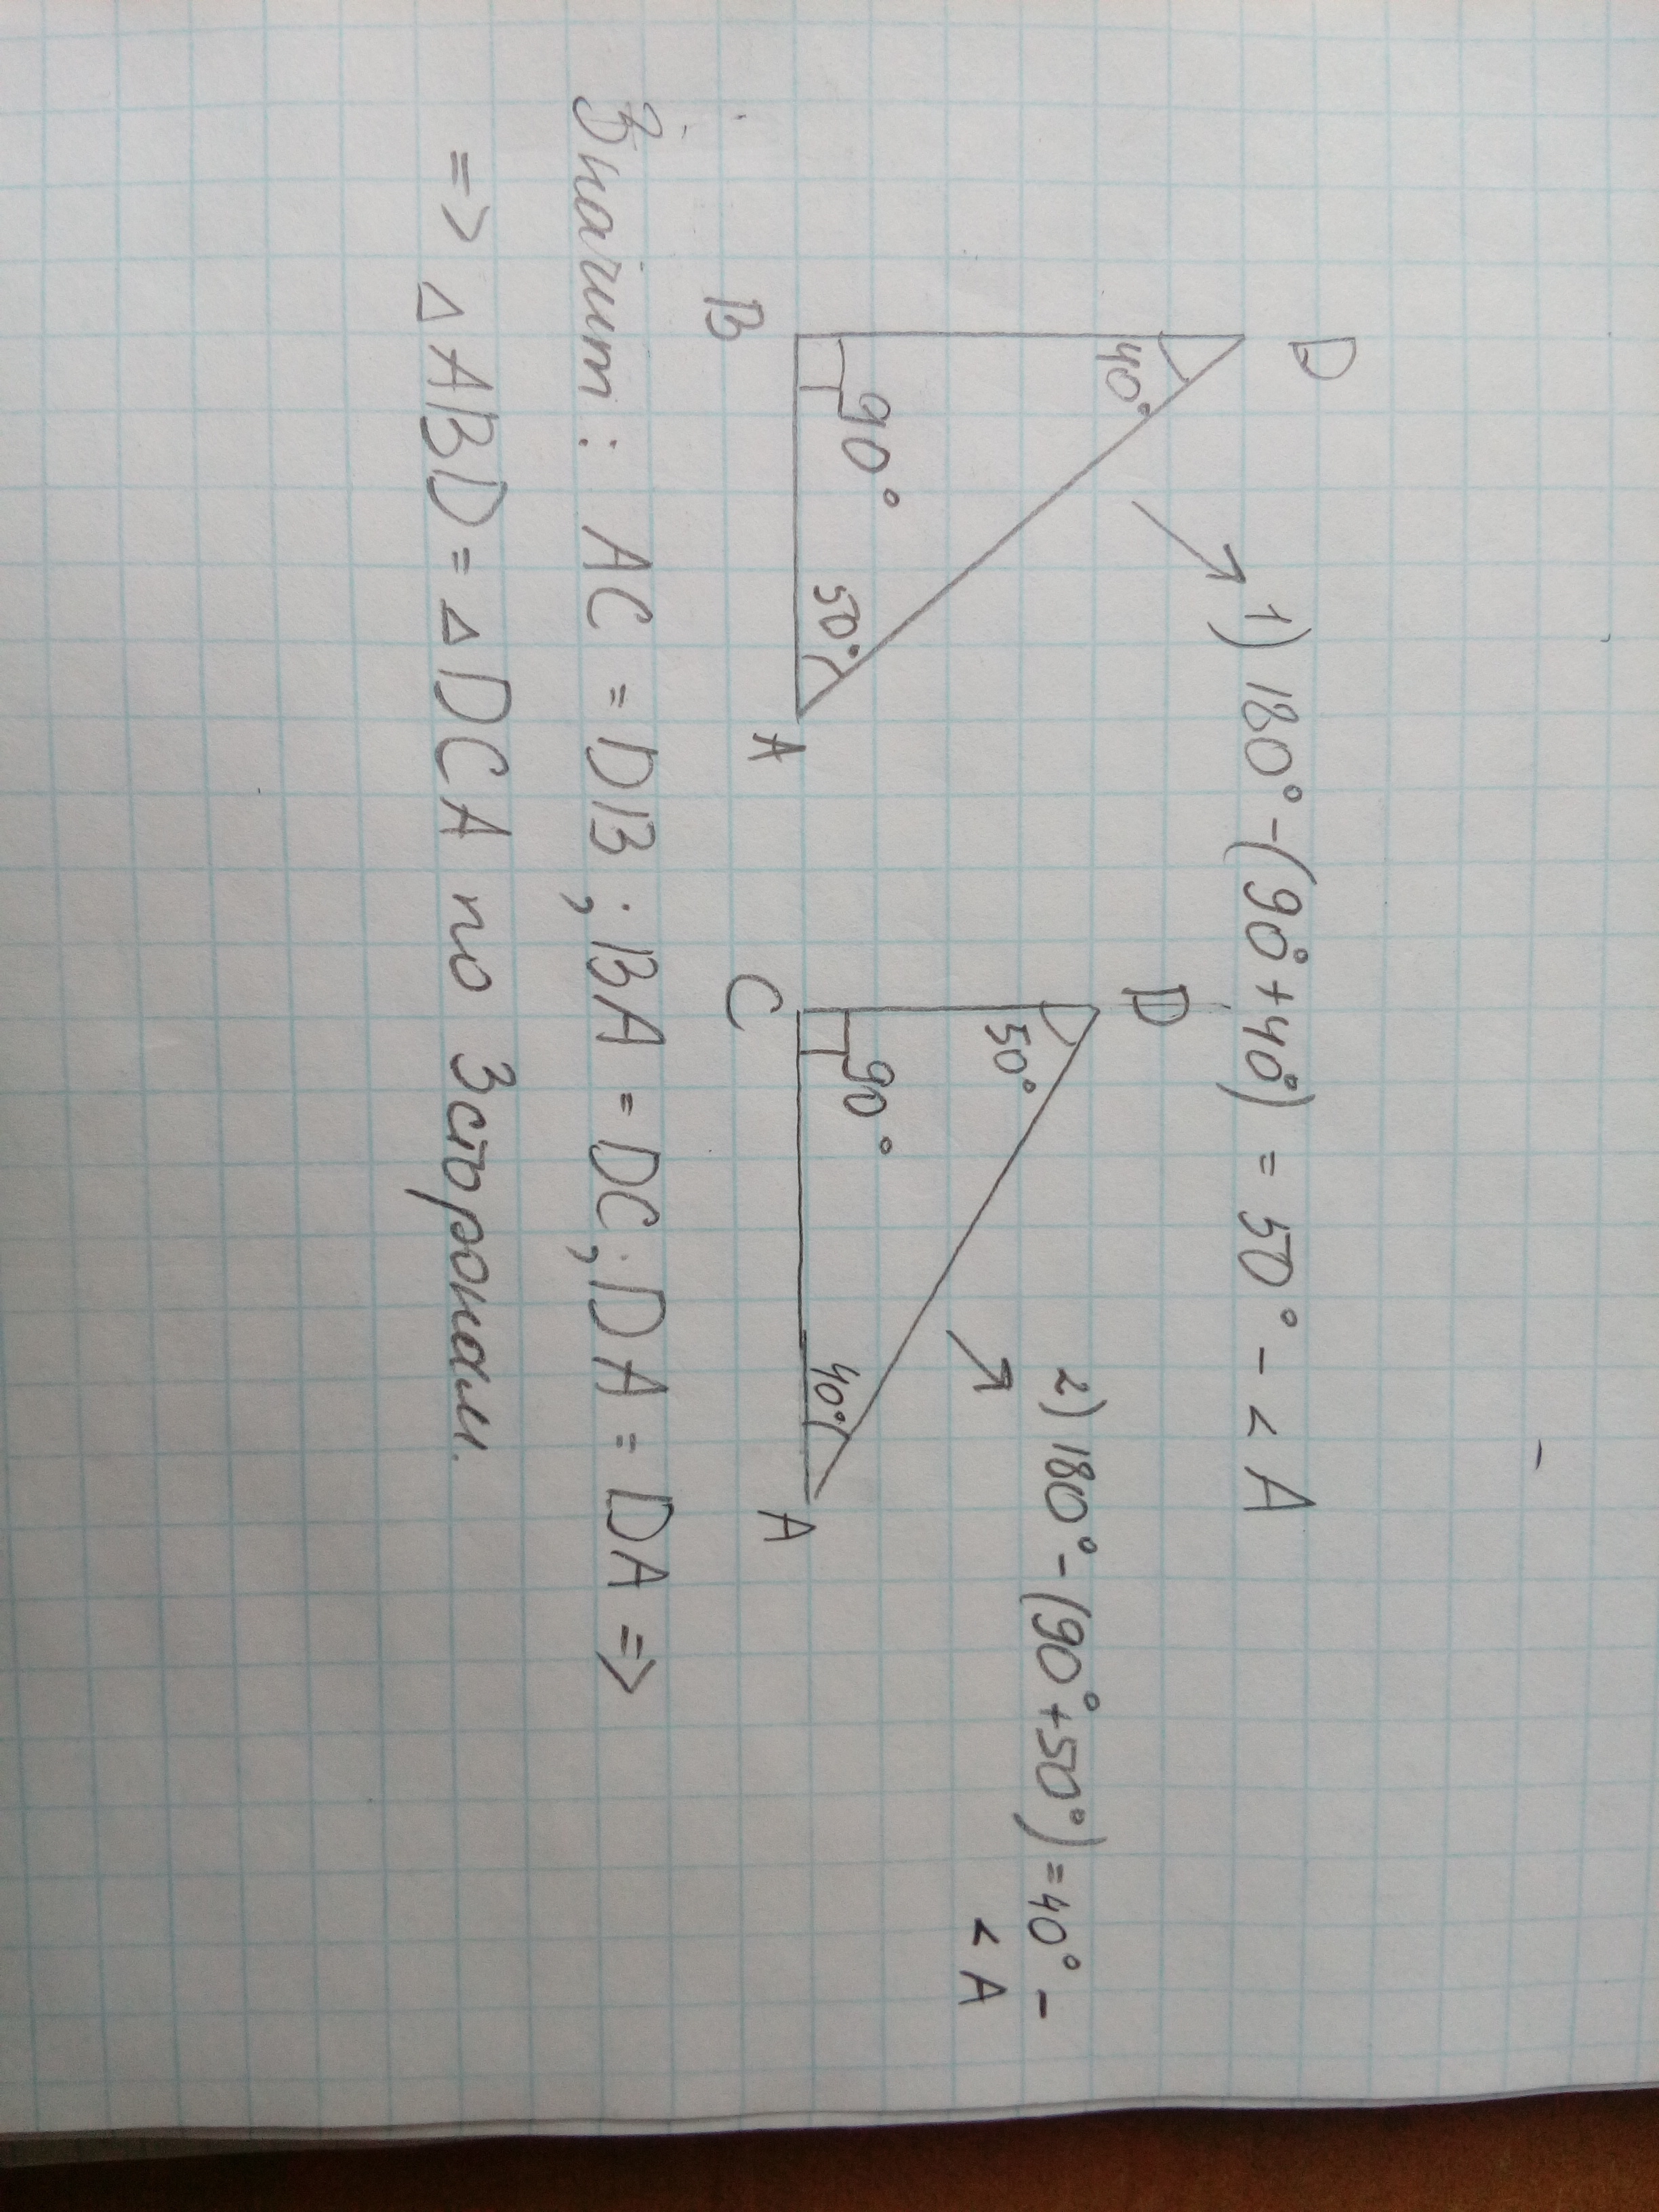 1) 180° - (90° + 40°) = 50° - < A
D
40°
90°
50°
B
A
2) 180° - (90° + 50°) = 40° -
< A
D
50°
90°
40°
C
A
Значит: AC = DB; BA = DC; DA = DA =>
=> △ ABD = △ DCA по 3 сторонам.